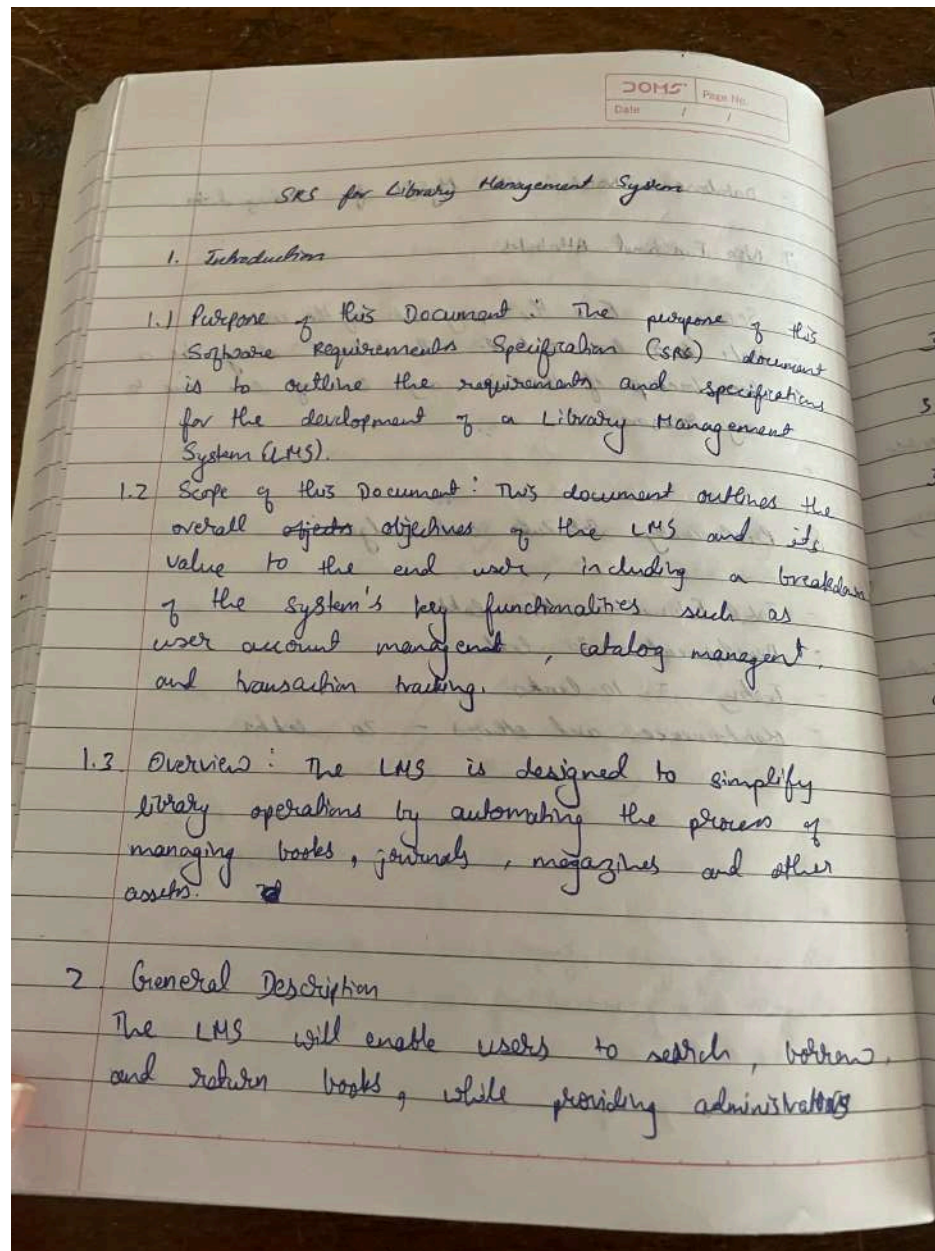 DOMS
Page No.
Date / /
SRS for Library Management System
1. Introduction
1.1 Purpose of this Document : The purpose of this
Software Requirements Specification (SRS) document
is to outline the requirements and specifications
for the development of a Library Management
System (LMS).
1.2 Scope of this Document : This document outlines the
overall objects objectives of the LMS and its
value to the end user, including a breakdown
of the system's key functionalities such as
user account managemt , catalog managent ,
and transaction tracking.
1.3 Overview : The LMS is designed to simplify
library operations by automating the process of
managing books , journals , magazines and other
assets.
2 General Description
The LMS will enable users to search , borrow ,
and return books , while providing administrators